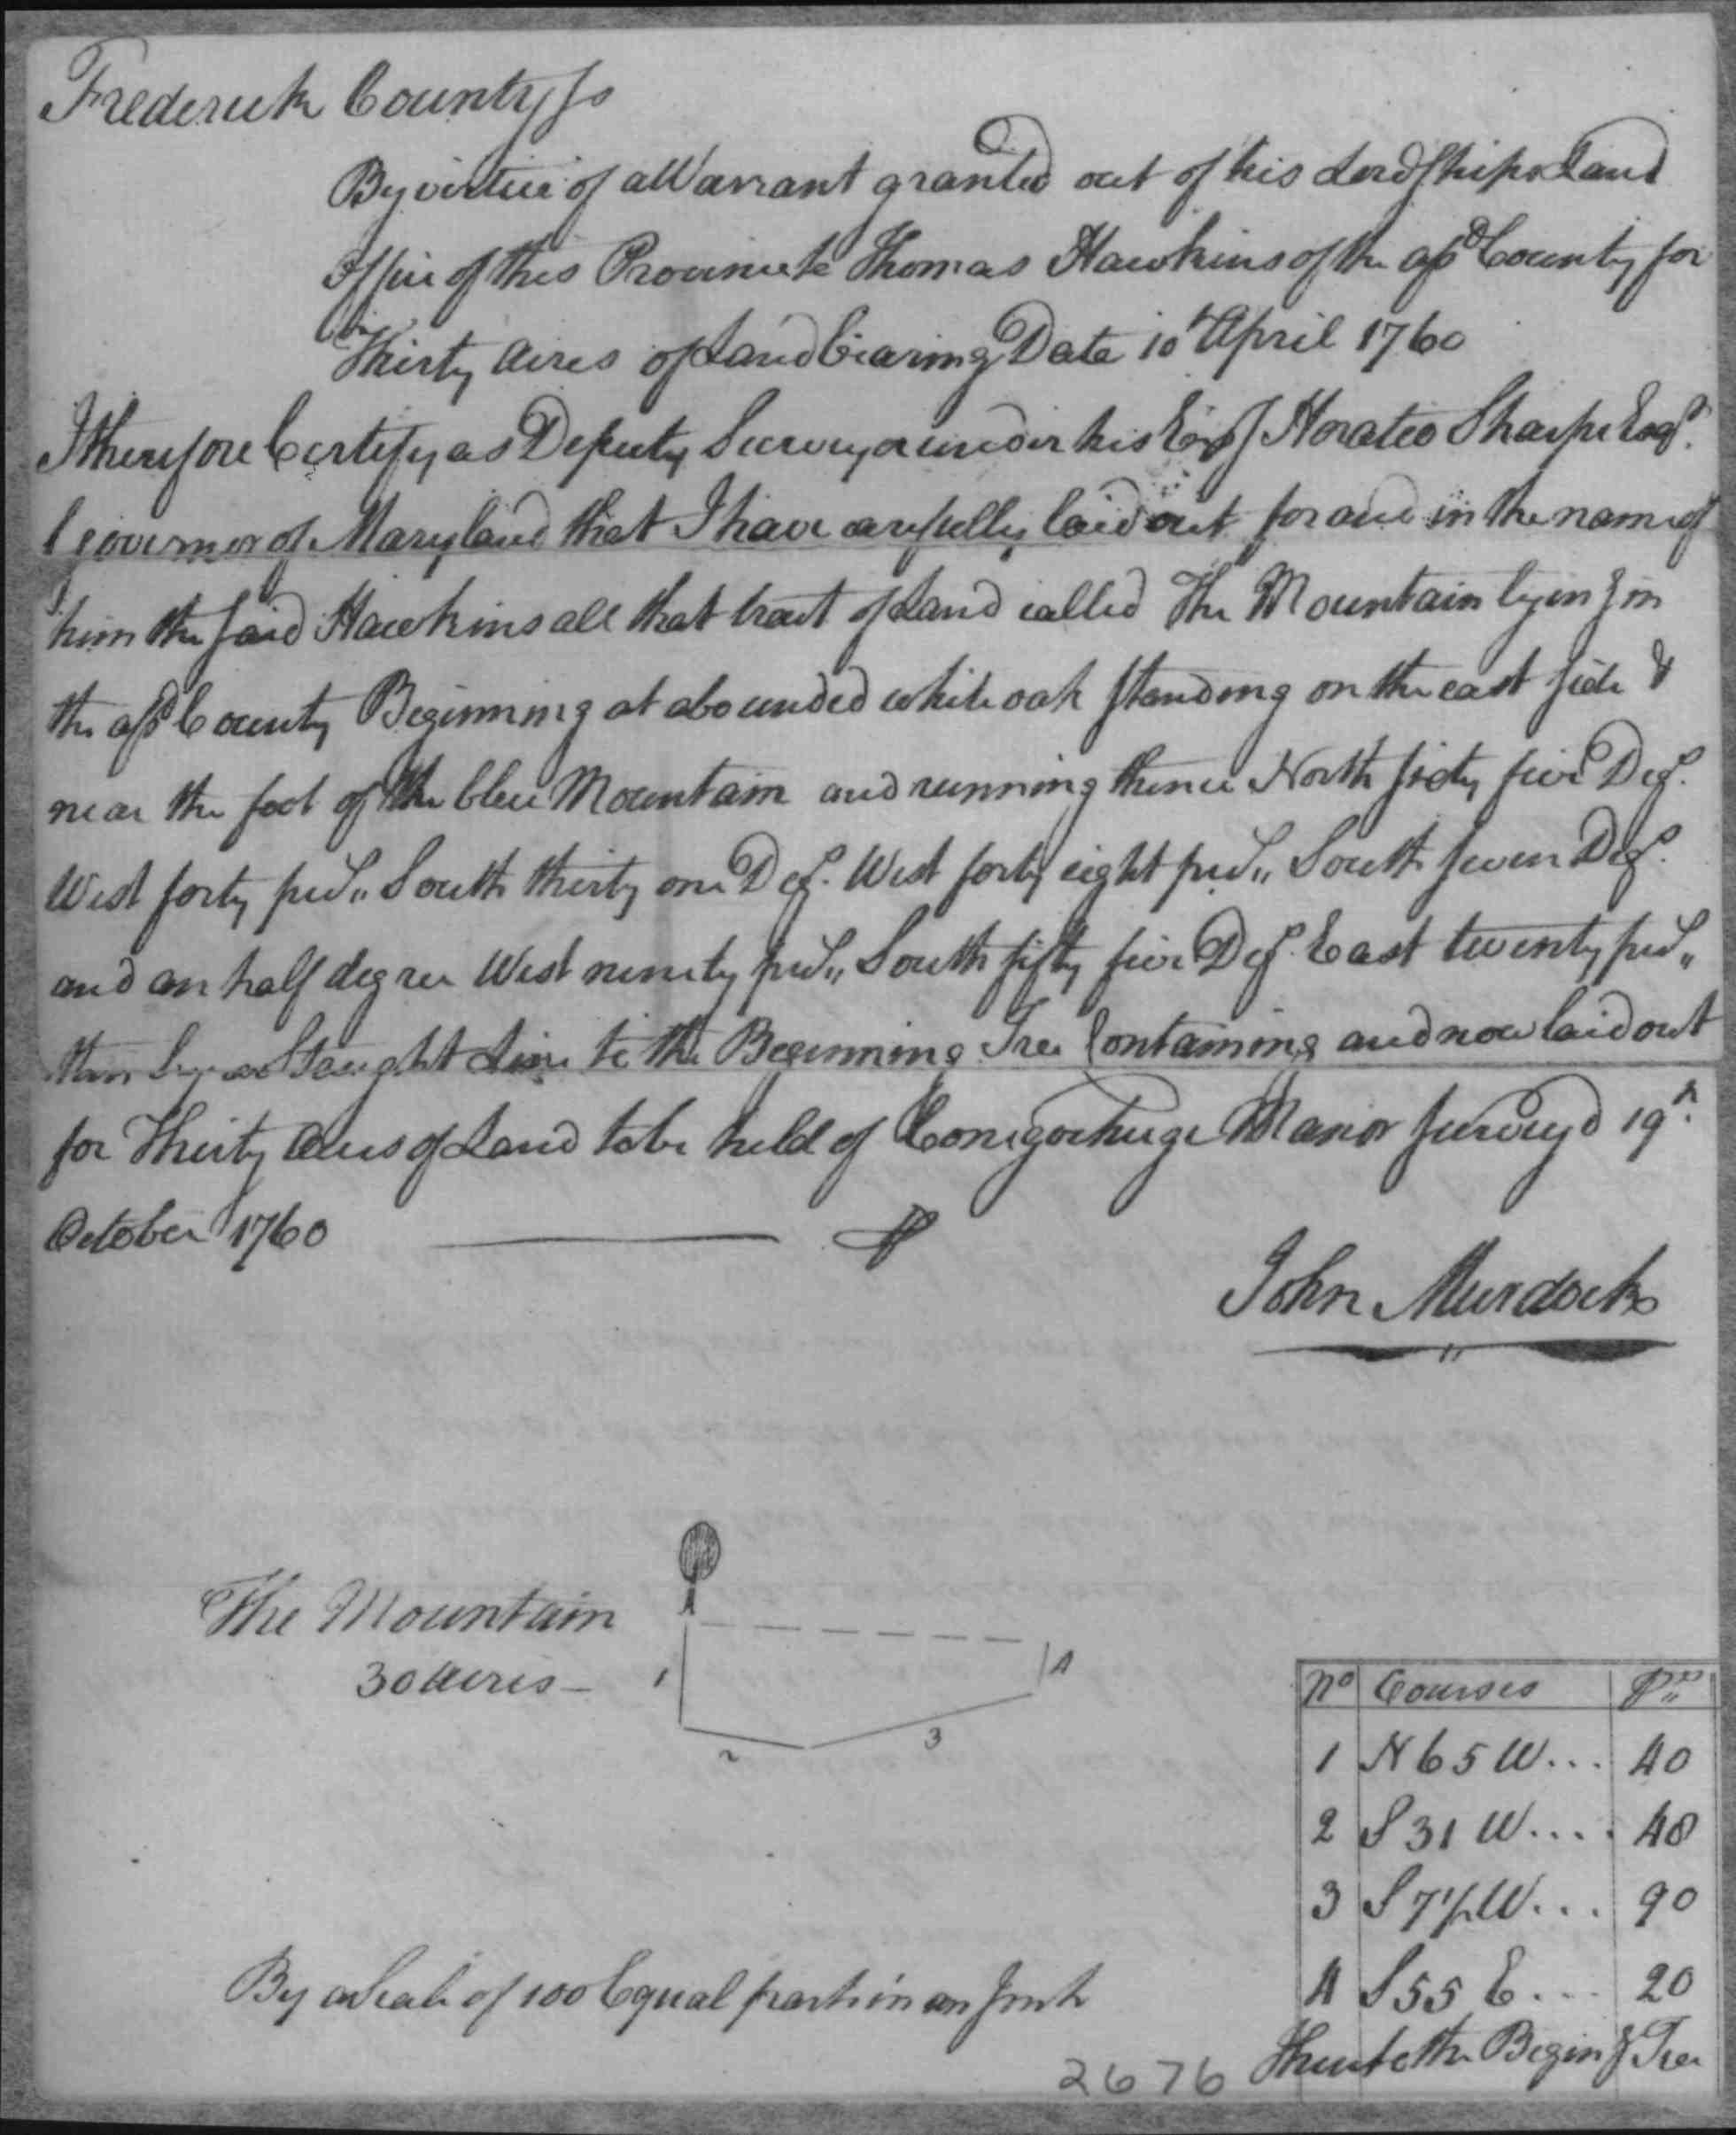 Frederick County ss
By virtue of a Warrant granted out of his Lordships Land
Office of this Province to Thomas Hawkins of the afsd County for
Thirty Acres of Land bearing Date 10th April 1760
I therefore Certify as Deputy Surveyor under his Excy Horatio Sharpe Esqr.
Governor of Maryland that I have carefully laid out for and in the name of
him the said Hawkins all that tract of Land called The Mountain lying in
the afsd County Beginning at a bounded white oak standing on the east side &
near the foot of the blue Mountain and running thence North sixty five Degs.
West forty ps.,, South thirty one Degs. West forty eight ps.,, South seven Degs.
and an half degree West ninety ps.,, South fifty five Degs. East twenty ps.,,
then by a Straight Line to the Beginning Tree Containing and now laid out
for Thirty Acres of Land to be held of Conegocheige Manor survey'd 19th.
October 1760
John Murdock
The Mountain
30 Acres –
1
2
3
4
No Courses Ps
1 N 65 W ... 40
2 S 31 W .... 48
3 S 7 1/2 W ... 90
4 S 55 E .... 20
Then to the Begining Tree
By a Scale of 100 Equal parts in an Inch
2676